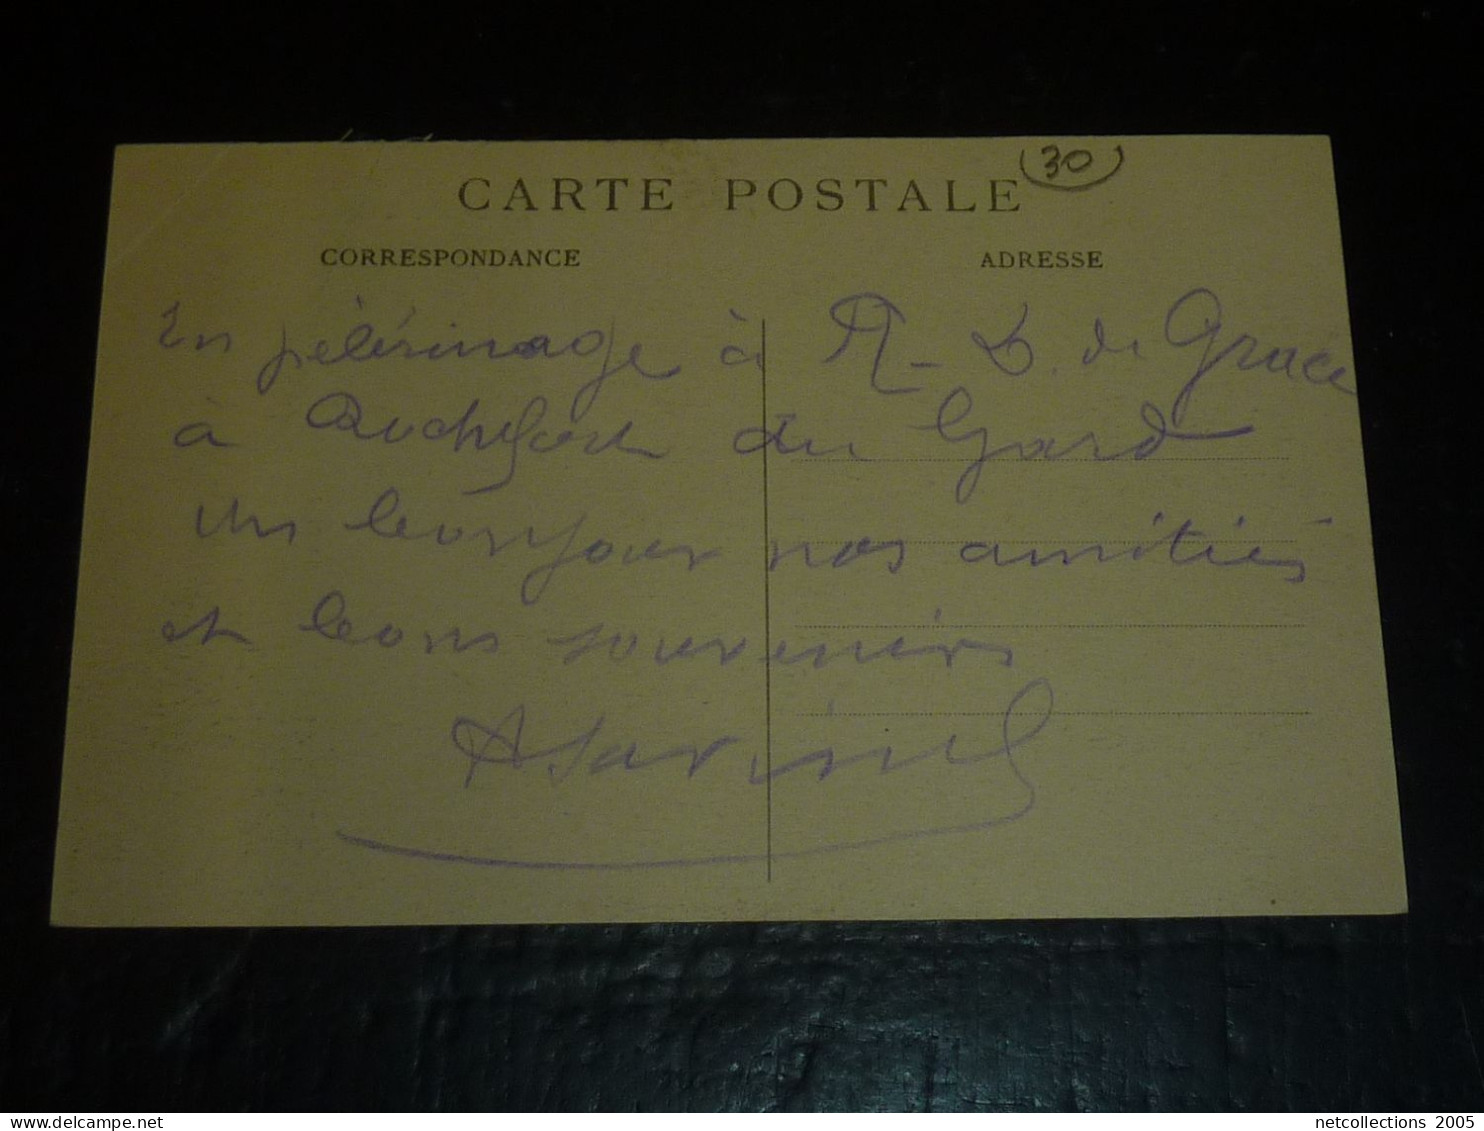 (30)
CARTE POSTALE
CORRESPONDANCE
ADRESSE
En pèlérinage à N-D. de Grace
à Rochefort du Gard
Un bonjour nos amitiés
et bons souvenirs
netcollections 2005